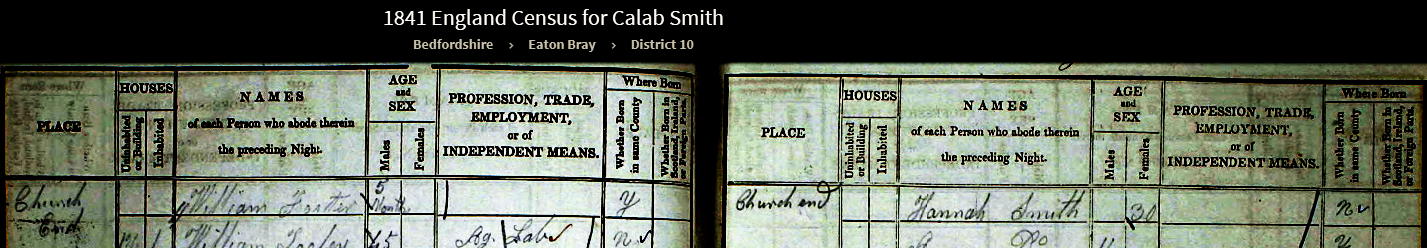 1841 England Census for Calab Smith
Bedfordshire › Eaton Bray › District 10
PLACE
HOUSES
Uninhabited or Building
Inhabited
NAMES
of each Person who abode therein
the preceding Night.
AGE
and
SEX
Males
Females
PROFESSION, TRADE,
EMPLOYMENT,
or of
INDEPENDENT MEANS.
Where Born
Whether Born in same County
Whether Born in Scotland, Ireland, or Foreign Parts.
Church End
William 5 Month Y
William 45 Ag. Lab N
PLACE
HOUSES
Uninhabited or Building
Inhabited
NAMES
of each Person who abode therein
the preceding Night.
AGE
and
SEX
Males
Females
PROFESSION, TRADE,
EMPLOYMENT,
or of
INDEPENDENT MEANS.
Where Born
Whether Born in same County
Whether Born in Scotland, Ireland, or Foreign Parts.
Church end Hannah Smith 30 N
Do